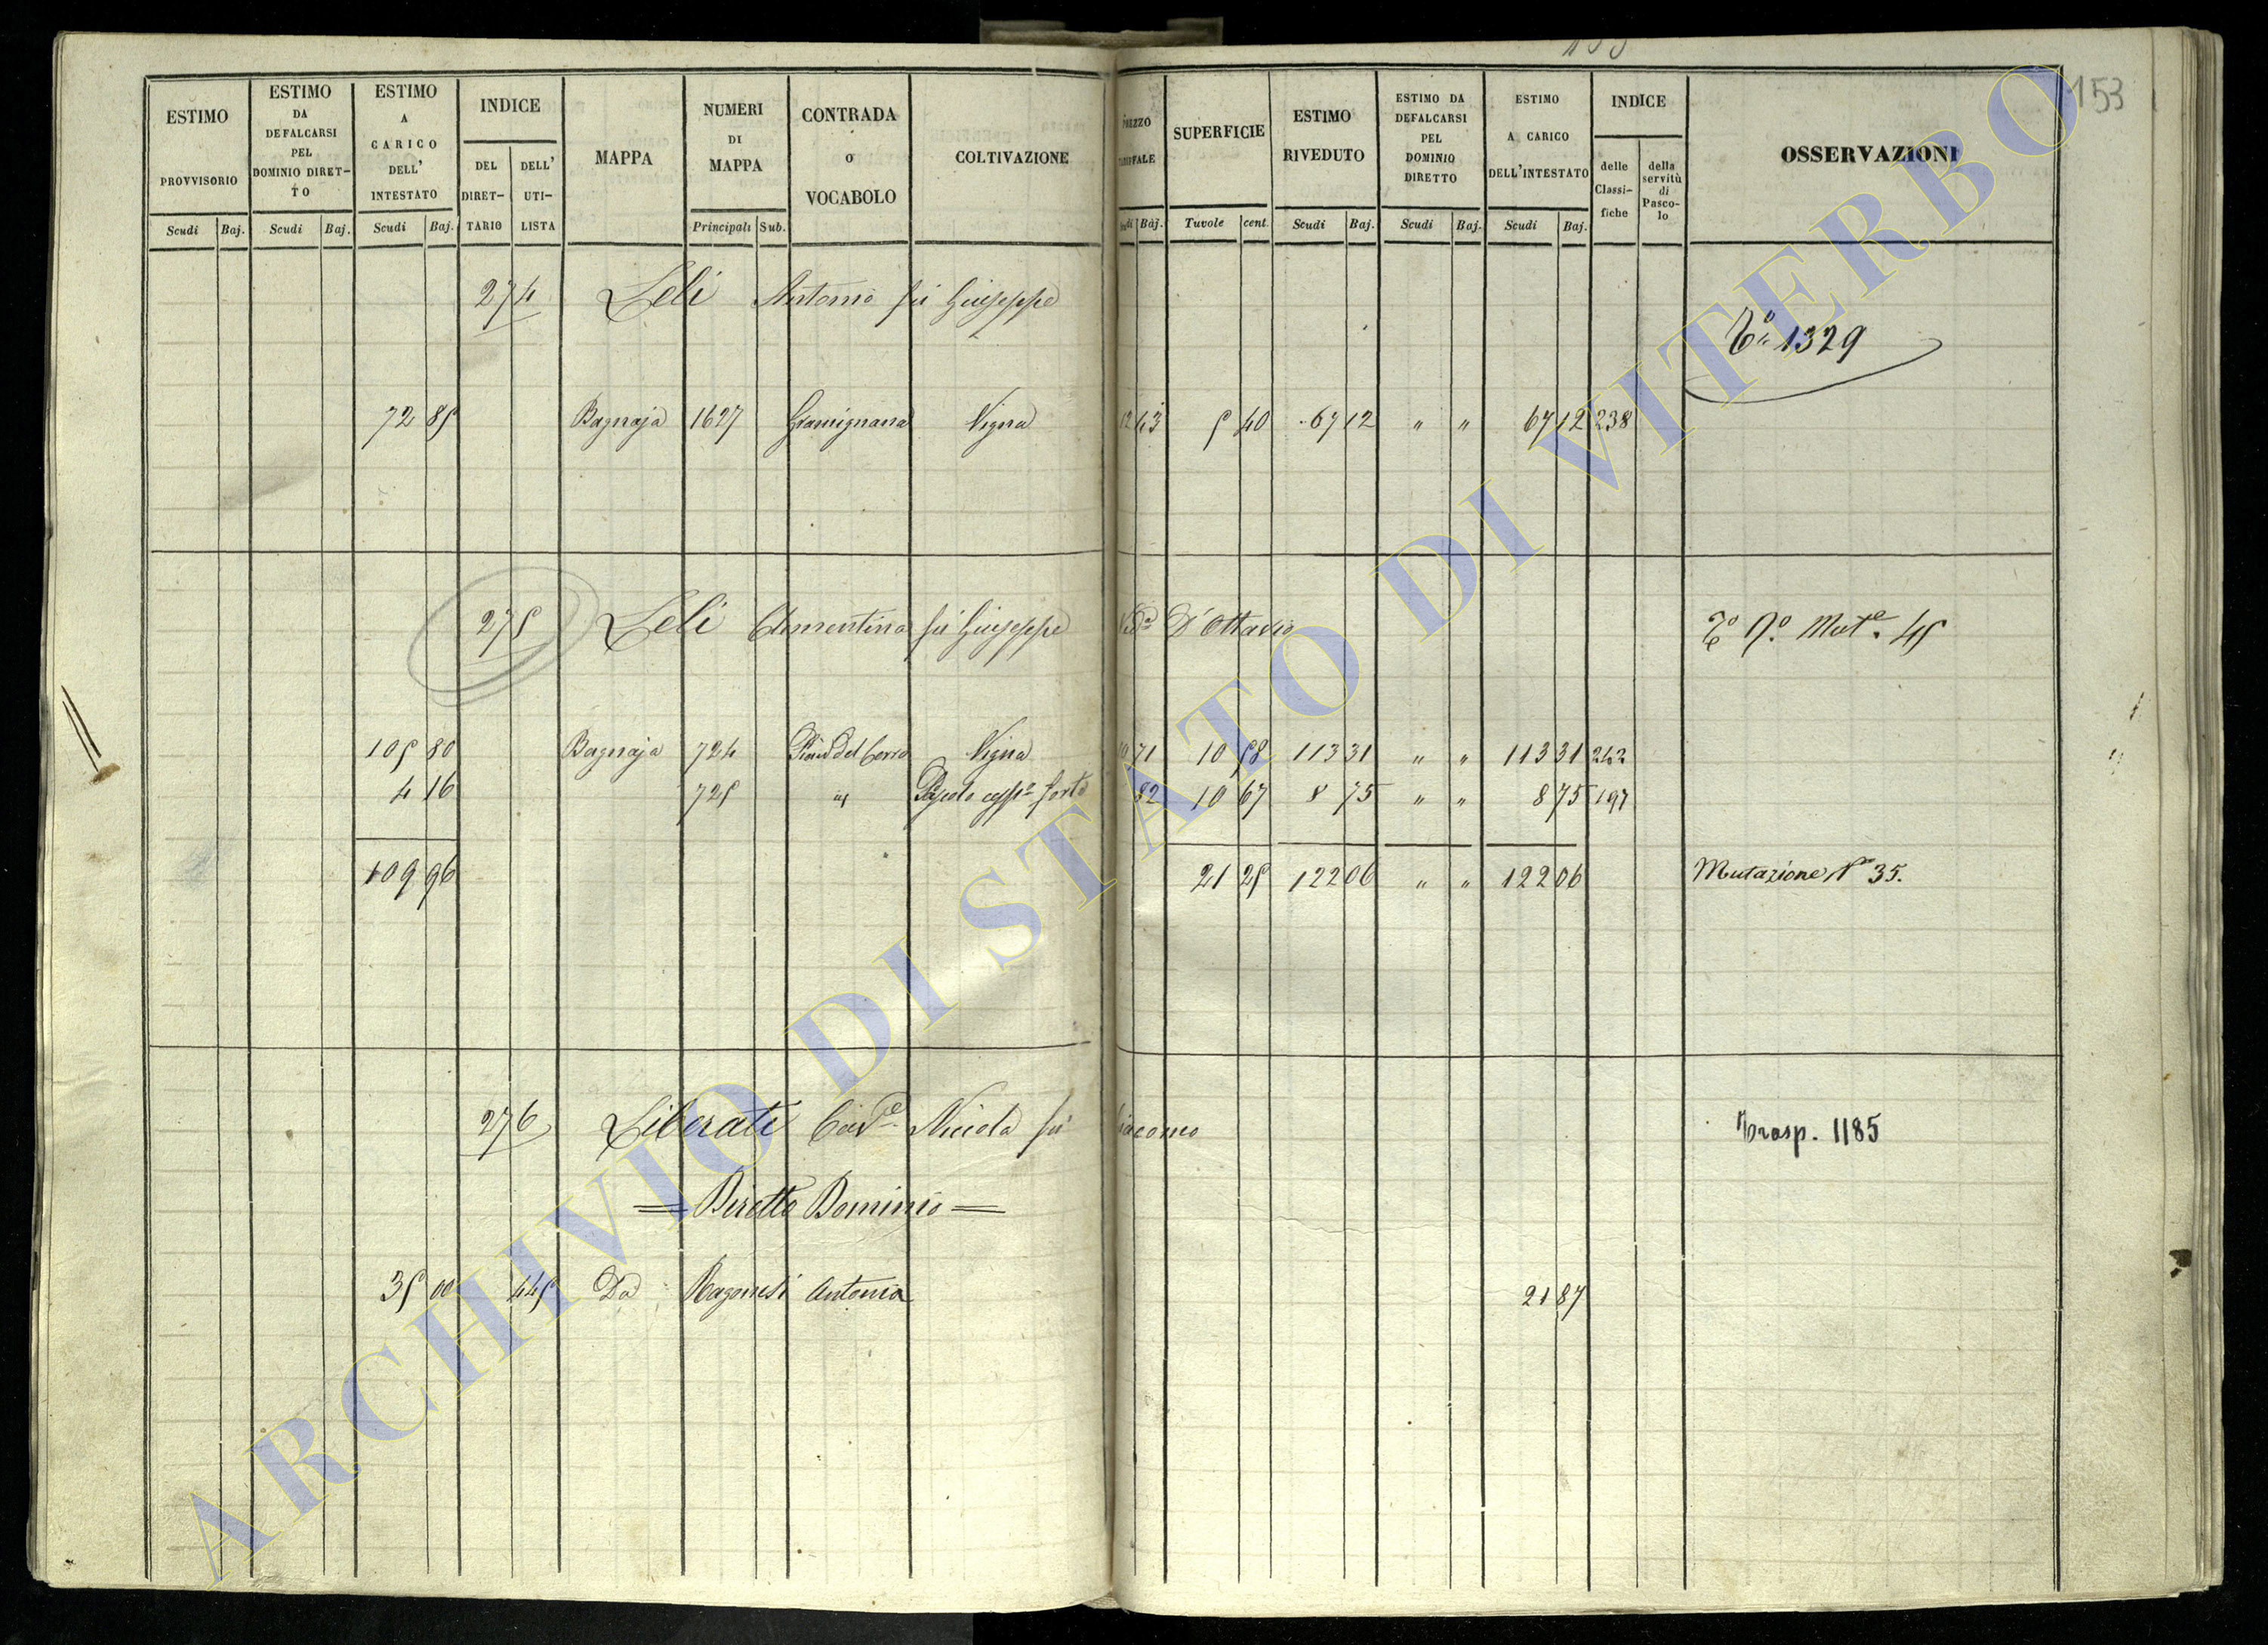 153
ESTIMO PROVVISORIO Scudi Baj.
ESTIMO DA DEFALCARSI PEL DOMINIO DIRETTO Scudi Baj.
ESTIMO A CARICO DELL' INTESTATO Scudi Baj.
INDICE DEL DIRETTARIO DELL' UTILISTA
MAPPA
NUMERI DI MAPPA Principali Sub.
CONTRADA o VOCABOLO
COLTIVAZIONE
SUPERFICIE Tavole cent.
ESTIMO RIVEDUTO Scudi Baj.
ESTIMO DA DEFALCARSI PEL DOMINIO DIRETTO Scudi Baj.
ESTIMO A CARICO DELL'INTESTATO Scudi Baj.
INDICE delle Classifiche della servitù di Pascolo
OSSERVAZIONI
274 Leli Antonio fu Giuseppe
To 1329
72 85 Bagnaja 1627 Gramignana Vigna 12 43 5 40 67 12 " " 67 12 238
275 Leli Clementina fu Giuseppe Veda D'Ottavio
To No. Mute. 45
105 80 Bagnaja 724 Vigna 10 71 10 58 113 31 " " 113 31 242
4 16 725 Pascolo forte 82 10 67 8 75 " " 8 75 197
109 96 21 25 122 06 " " 122 06 Mutazione No 35.
276 Liberati Nicola fu Giacomo
Trasp. 1185
= Diretto Dominio =
35 00 445 Da Ragonesi Antonia 21 87
ARCHIVIO DI STATO DI VITERBO